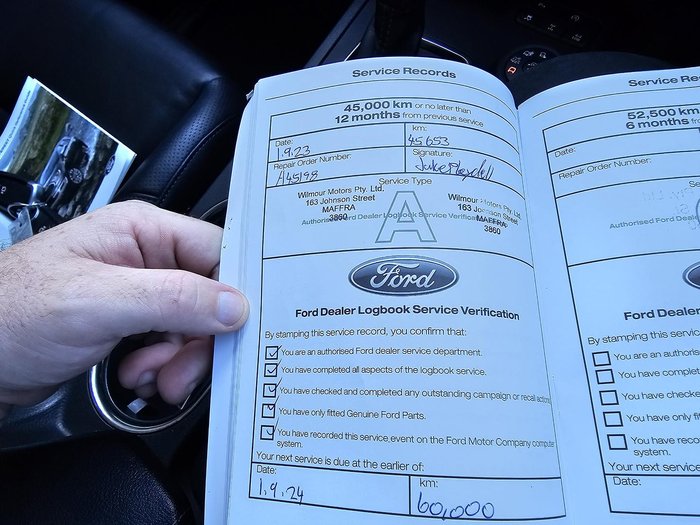 Service Records
45,000 km or no later than
12 months from previous service
Date: km:
1.9.23 45653
Repair Order Number: Signature:
A45198
Service Type
Wilmour Motors Pty. Ltd.
163 Johnson Street
MAFFRA
3860
A
Authorised Ford Dealer Logbook Service Verification
163 Johnson
MAFFRA
3860
Ford
Ford Dealer Logbook Service Verification
By stamping this service record, you confirm that:
You are an authorised Ford dealer service department.
You have completed all aspects of the logbook service.
You have checked and completed any outstanding campaign or recall actions
You have only fitted Genuine Ford Parts.
You have recorded this service event on the Ford Motor Company computer
system.
Your next service is due at the earlier of:
Date: km:
1.9.24 60,000
Service Re
52,500 km
6 months from
Date:
Repair Order Number:
Authorised Ford Deal
Ford Dealer
By stamping this service
You are an authoris
You have complet
You have checke
You have only fit
You have reco
system.
Your next service
Date: